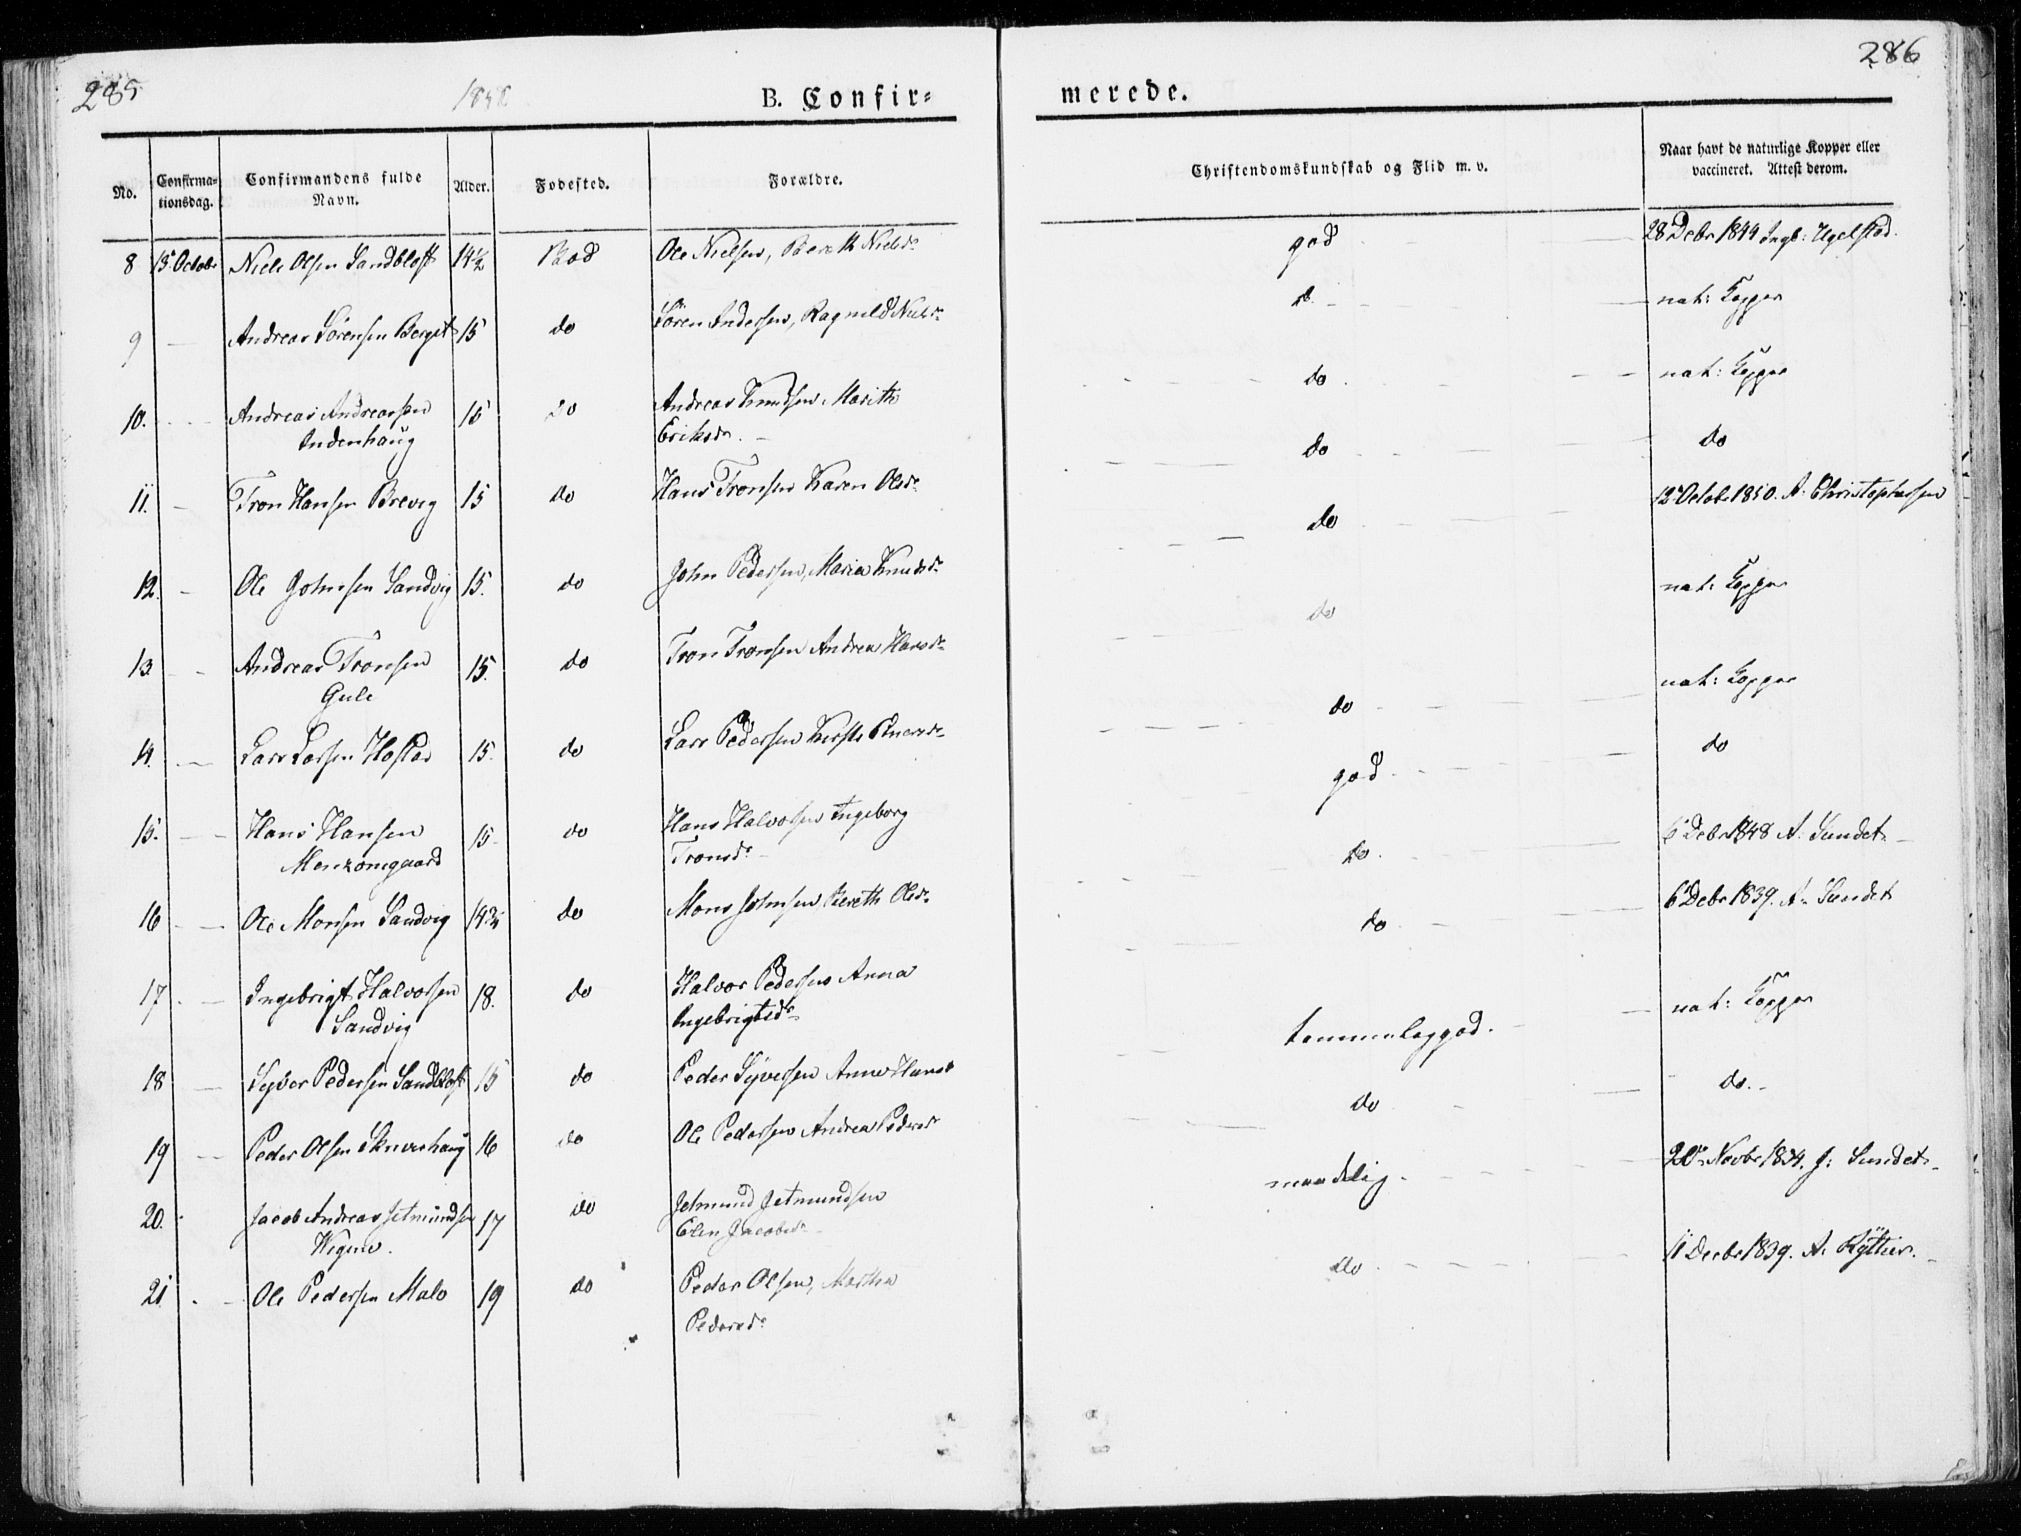 285
286
B. Confir=
merede.
No.
Confirma-
tionsdag.
Confirmandens fulde
Navn.
Alder.
Fødested.
Forældre.
Christendomskundskab og Flid m. v.
Naar havt de naturlige Kopper eller
vaccineret. Attest derom.
8 15 Octobr Niels Olsen Sandbloft 14½ Bod Ole Nielsen, Bereth Nielsdr god 28 Debr 1844 Ingb: Ugelstad.
9 Andreas Sørensen Berget 15 do Søren Andersen, Ragnild Nielsdr do nat: Kopper
10. Andreas Andreassen 15 do Andreas Knudsen Marith do nat: Kopper
Indenhaug Eriksdr.
11. Tron Hansen Brevig 15 do Hans Tronsen Karen Olsdr do do
12. Ole Johnsen Sandvig 15. do John Pedersen, Maria Knudsdr do 12 Octobr 1850. A. Christophersen
13. Andreas Tronsen 15. do Tron Tronsen Andrea Hansdr do nat: Kopper
Gule
14. Lars Larsen Hostad 15. do Lars Pedersen do nat: Kopper
15. Hans Hansen 15 do Hans Halvorsen Ingeborg god do
Tronsdr
16 Ole Monsen Sandvig 14¾ do Mons Johnsen Bereth Olsdr do 6 Debr 1848 A. Sundet
17 Ingebrigt Halvorsen 18. do Halvor Pedersen Anna do 6 Debr 1839. A. Sundet
Sandvig Ingebrigtsdr
18 Syver Pedersen Sandbloft 15 do Peder Syversen Anne Hansd temmelig god. nat: Kopper
19 Peder Olsen 16 do Ole Pedersen Andrea Pedersdr do do.
20. Jacob Andreas Jetmundsen 17 do Jetmund Jetmundsen maadelig. 20 Novbr 1834. J: Sundet
Elen Jacobsdr
21 Ole Pedersen Malo 19 do Peder Olsen, Martha do 11 Decbr 1839. A.
Pedersdr